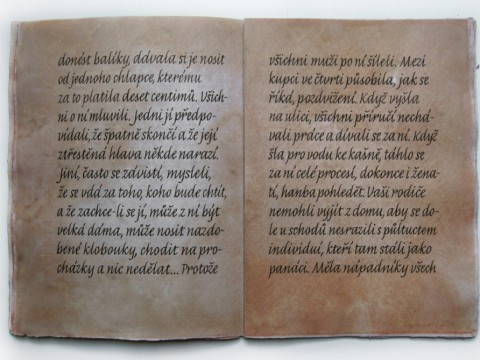 donést balíky, dávala si je nosit
od jednoho chlapce, kterému
za to platila deset centimů. Všich-
ni o ní mluvili. Jedni jí předpo-
vídali, že špatně skončí a že její
ztřeštěná hlava někde narazí.
Jiní, často se závistí, mysleli,
že se vdá za toho, koho bude chtít,
a že zachce-li se jí, může z ní být
velká dáma, může nosit nazdo-
bené klobouky, chodit na pro-
cházky a nic nedělat... Protože
všichni muži po ní šíleli. Mezi
kupci ve čtvrti působila, jak se
říká, pozdvižení. Když vyšla
na ulici, všichni příručí nechá-
vali práce a dívali se za ní. Když
šla pro vodu ke kašně, táhlo se
za ní celé procesí, dokonce i žena-
tí, hanba pohledět. Vaši rodiče
nemohli vyjít z domu, aby se do-
le u schodů nesrazili s půltuctem
individuí, kteří tam stáli jako
panáci. Měla nápadníky všech